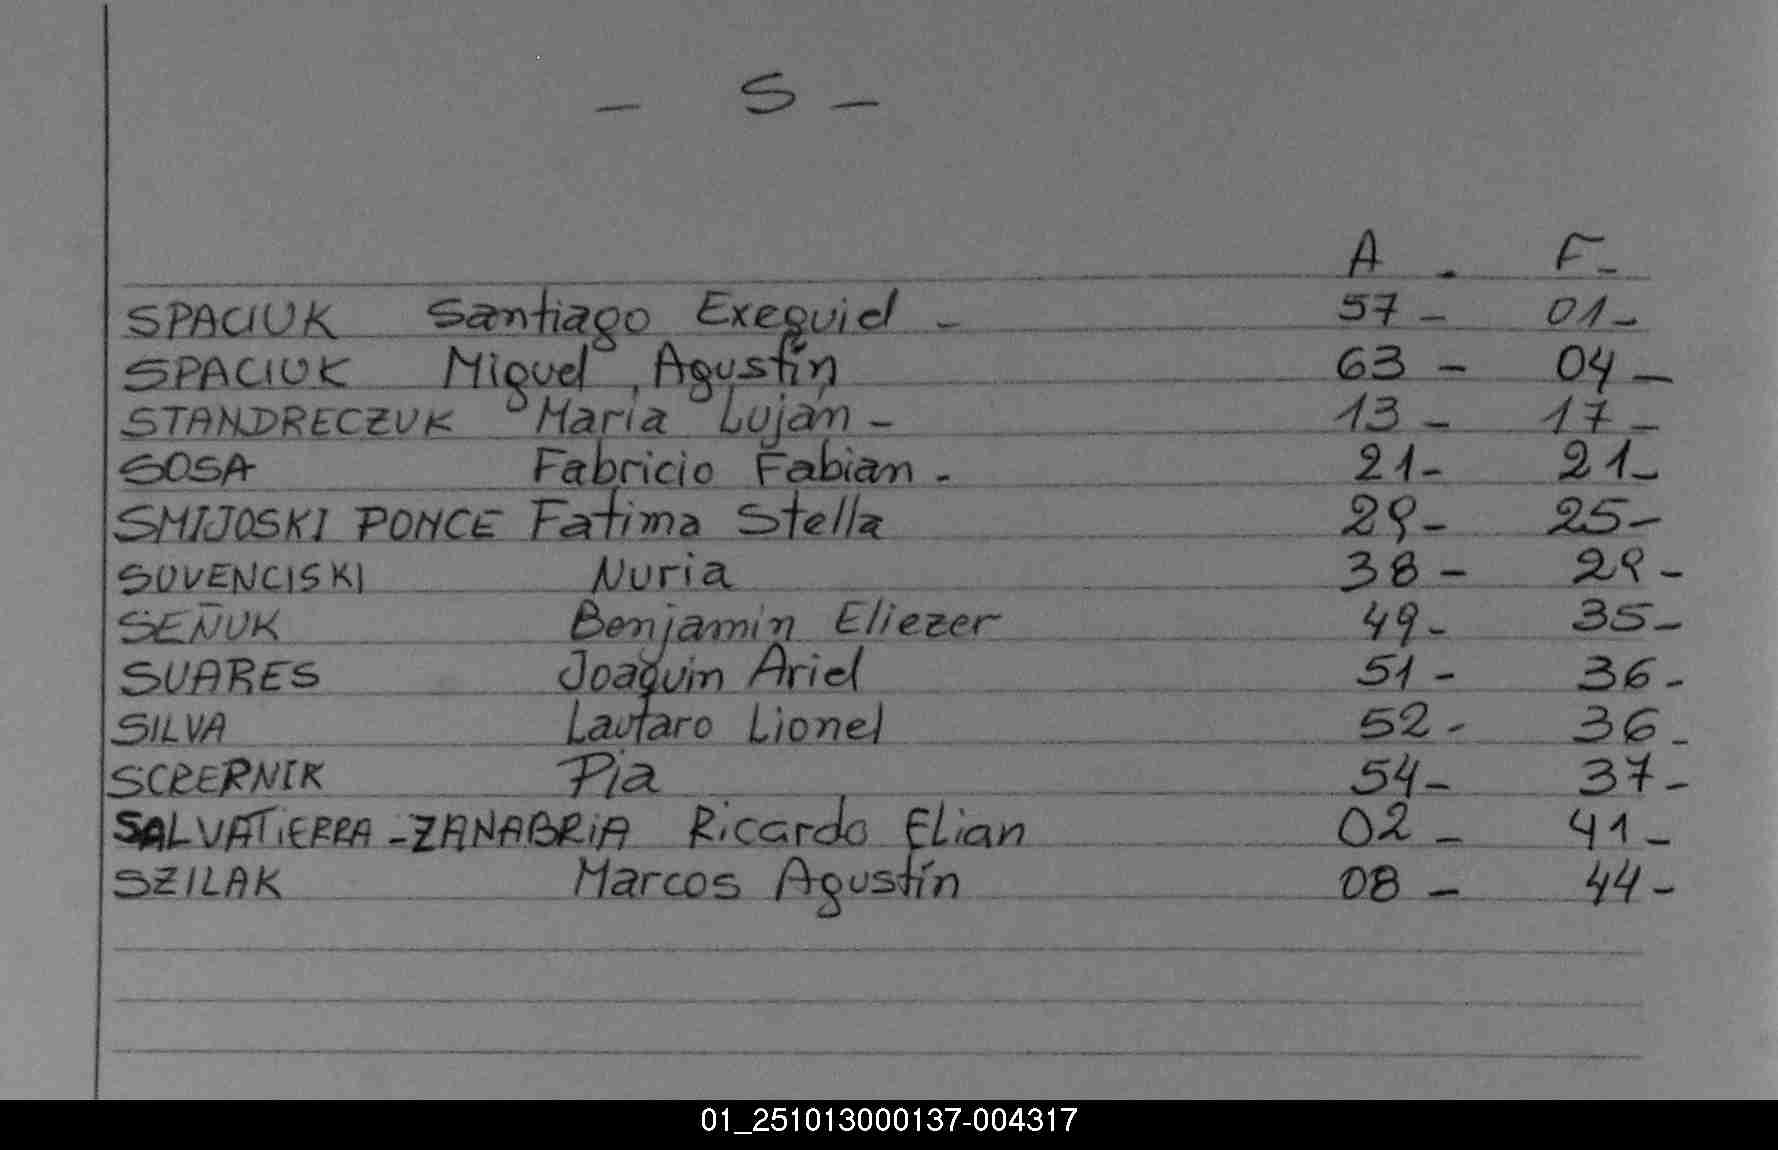 - S -
A . F-
SPACIUK Santiago Exequiel - 57 - 01-
SPACIUK Miguel Agustín 63 - 04 -
STANDRECZUK Maria Luján - 13 - 17 -
SOSA Fabricio Fabian - 21- 21-
SMIJOSKI PONCE Fatima Stella 29- 25-
SOVENCISKI Nuria 38 - 29 -
SEÑUK Benjamin Eliezer 49- 35-
SUARES Joaquin Ariel 51 - 36 -
SILVA Lautaro Lionel 52 - 36 -
SCRERNIK Pia 54- 37-
SALVATIERRA -ZANABRIA Ricardo Elian 02 - 41 -
SZILAK Marcos Agustín 08 - 44 -
01_251013000137-004317